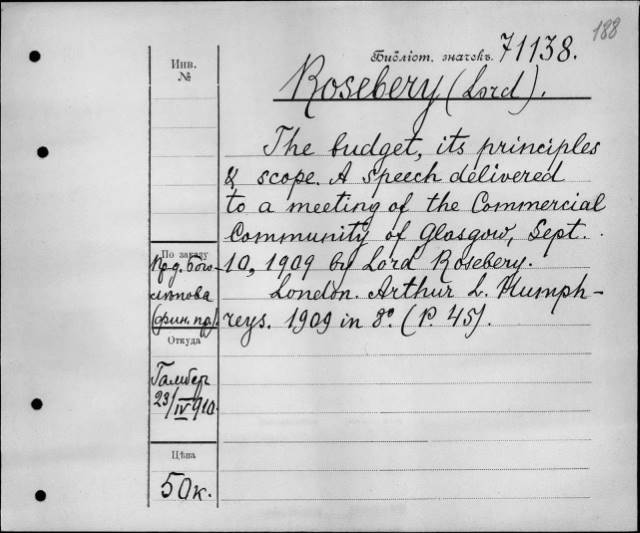 188
Библіот. значокъ. 71138.
Инв.
№
Rosebery (Lord).
The budget, its principles
& scope. A speech delivered
to a meeting of the Commercial
Community of Glasgow, Sept.
10, 1909 by Lord Rosebery.
London. Arthur L. Humph-
reys. 1909 in 8° (P. 45).
По заказу
Прд. Бого-
лѣпова
(фин. пр.)
Откуда
Гамбер
23/IV 910.
Цѣна
50к.